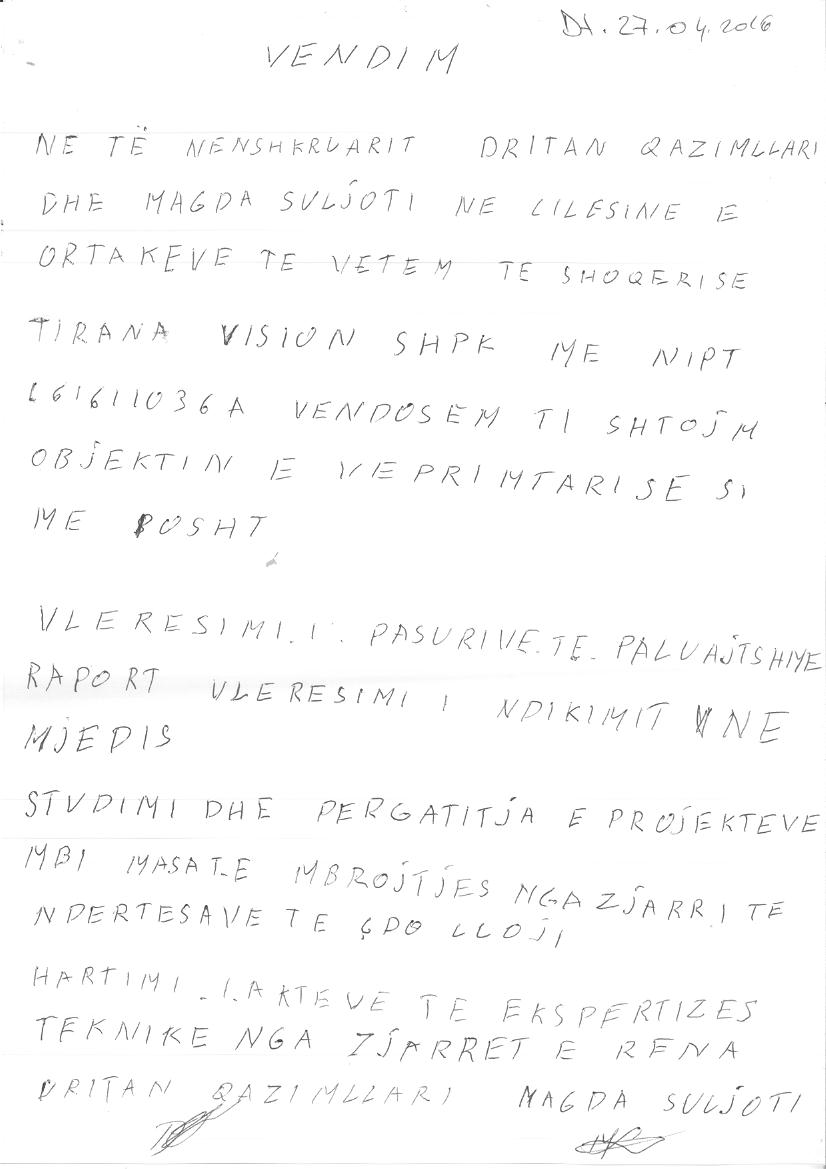 Dt. 27.04.2016
VENDIM
NE TË NENSHKRUARIT DRITAN QAZIMLLARI
DHE MAGDA SULJOTI NE CILESINE E
ORTAKEVE TE VETEM TE SHOQERISE
TIRANA VISION SHPK ME NIPT
L61611036A VENDOSEM TI SHTOJM
OBJEKTIN E VEPRIMTARISE SI
ME POSHT
VLERESIMI.I. PASURIVE.TE.PALUAJTSHME
RAPORT VLERESIMI I NDIKIMIT NE
MJEDIS
STUDIMI DHE PERGATITJA E PROJEKTEVE
MBI MASAT.E MBROJTJES NGA ZJARRI TE
NDERTESAVE TE ÇDO LLOJI
HARTIMI.I.AKTEVE TE EKSPERTIZES
TEKNIKE NGA ZJARRET E RENA
DRITAN QAZIMLLARI MAGDA SULJOTI